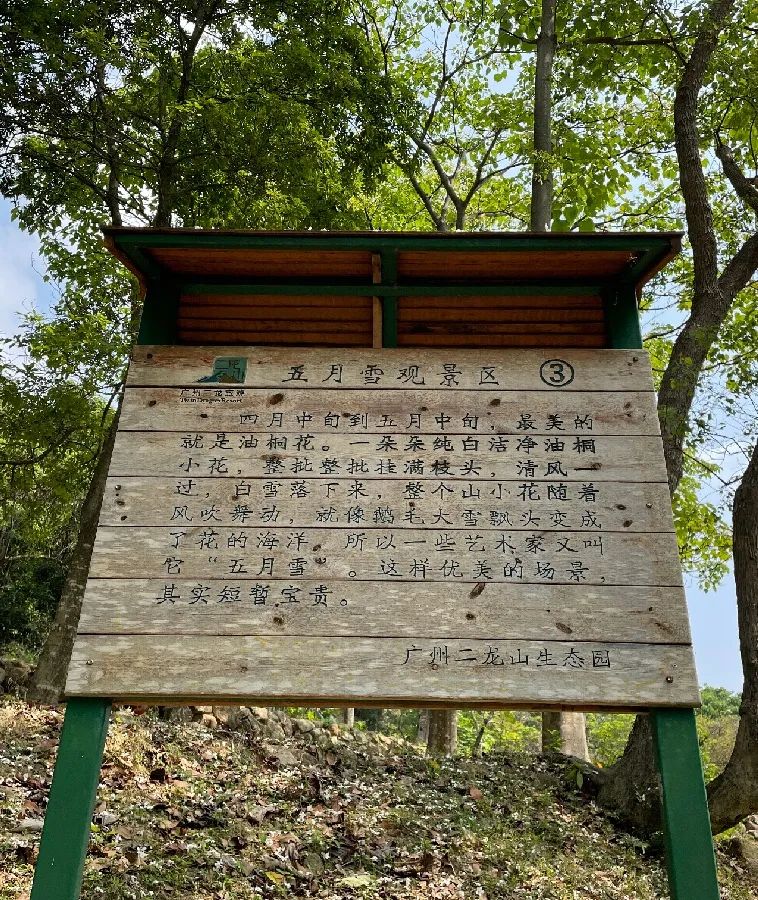 五月雪观景区 ③
四月中旬到五月中旬，最美的
就是油桐花。一朵朵纯白洁净油桐
小花，整批整批挂满枝头，清风一
过，白雪落下来，整个山小花随着
风吹舞动，就像鹅毛大雪飘头变成
了花的海洋。所以一些艺术家又叫
它“五月雪”。这样优美的场景，
其实短暂宝贵。
广州二龙山生态园